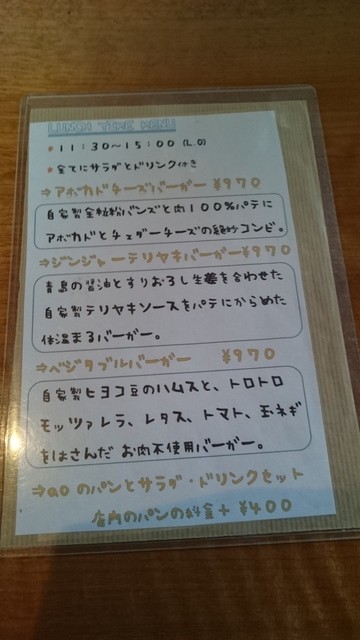 LUNCH TIME MENU
* 11:30～15:00 (L.O)
* 全てにサラダとドリンク付き
⇒アボカドチーズバーガー ¥970
自家製全粒粉バンズと肉100%パテに
アボカドとチェダーチーズの絶妙コンビ。
⇒ジンジャーテリヤキバーガー¥970
青島の醤油とすりおろし生姜を合わせた
自家製テリヤキソースをパテにからめた
体温まるバーガー。
⇒ベジタブルバーガー ¥970
自家製ヒヨコ豆のハムスと、トロトロ
モッツァレラ、レタス、トマト、玉ネギ
をはさんだ お肉不使用バーガー。
⇒aoのパンとサラダ・ドリンクセット
店内のパンの料金+ ¥400